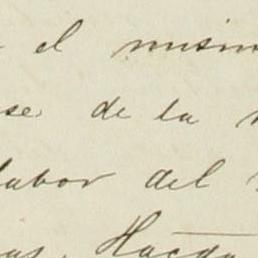 el mism
se de la
labor del
as. Hacda